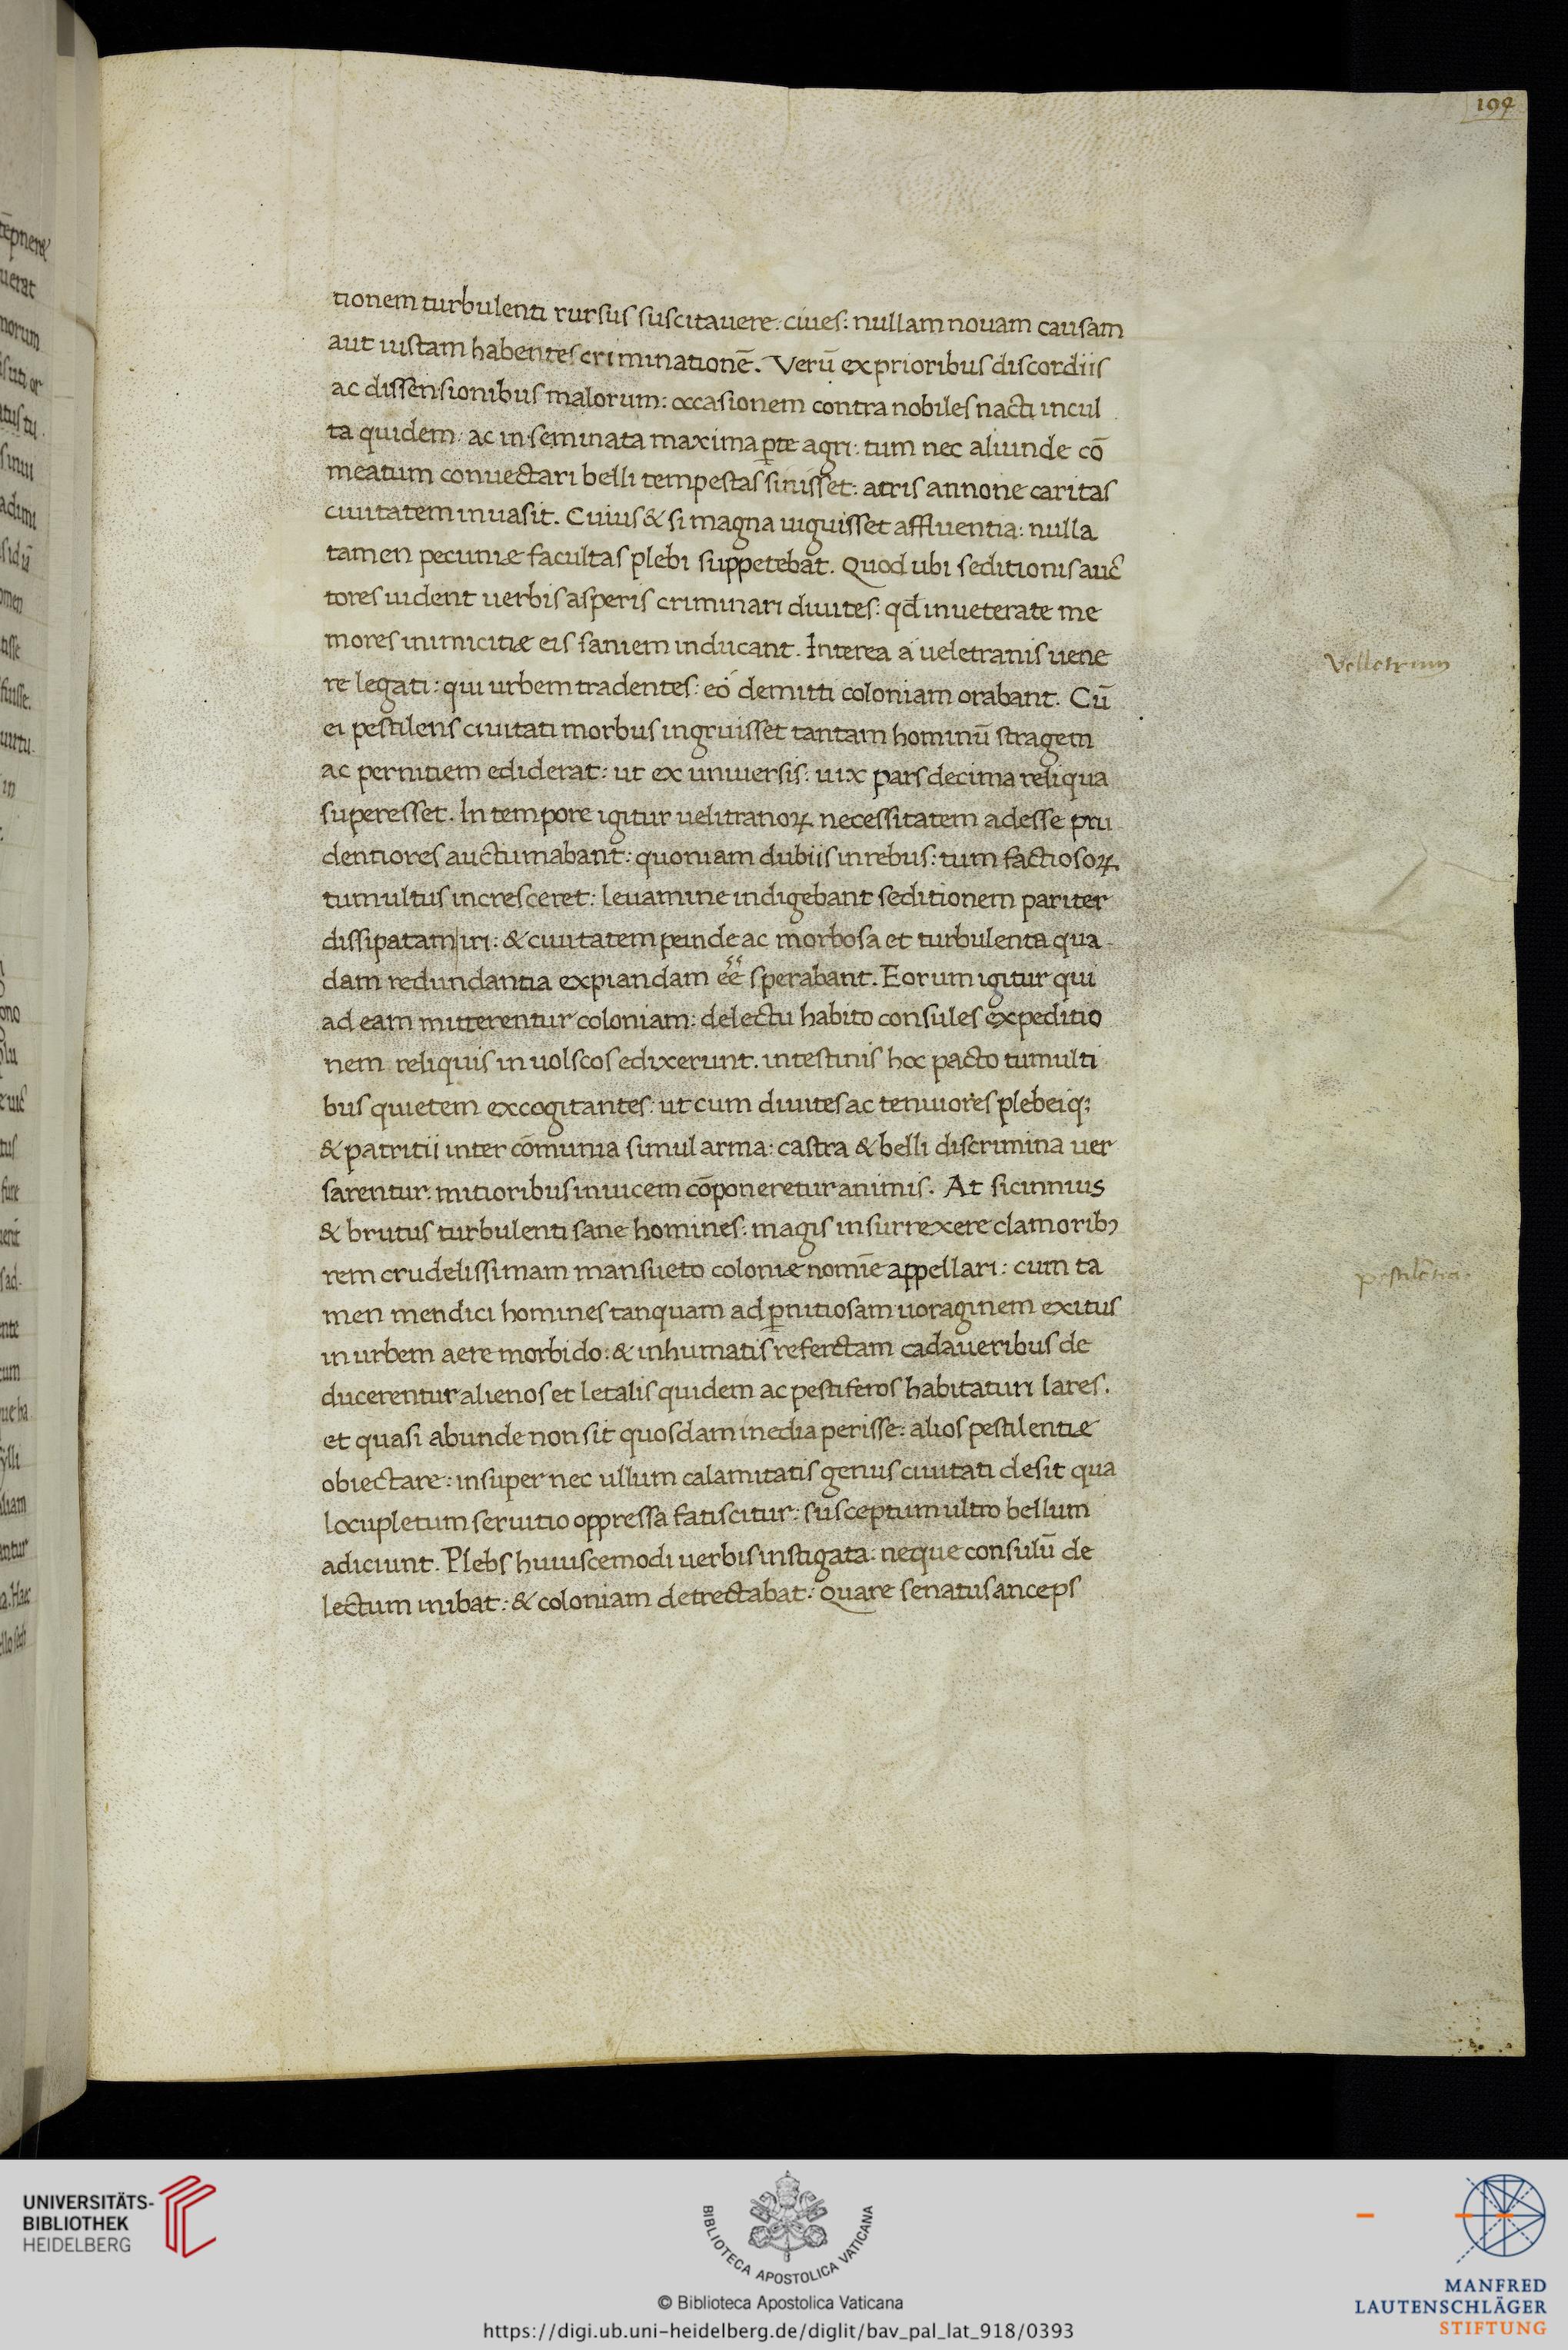 194
tionem turbulenti rursus suscitauere: ciues: nullam nouam causam
aut iustam habentes criminationē. Verū ex prioribus discordiis
ac dissensionibus malorum: occasionem contra nobiles nacti incul
ta quidem: ac inseminata maxima ꝑte agri: tum nec aliunde cō
meatum conuectari belli tempestas sinisset: atris annone caritas
ciuitatem inuasit. Cuius & si magna uiguisset affluentia: nulla
tamen pecuniæ facultas plebi suppetebat. Quod ubi seditionis auc̄
tores uident uerbis asperis criminari diuites: qd̄ inueterate me
mores inimicitiæ eis saniem inducant. Interea a ueletranis uene
re legati: qui urbem tradentes: eo demitti coloniam orabant. Cū
Velletrum
ei pestilens ciuitati morbus ingruisset tantam hominū stragem
ac pernitiem ediderat: ut ex uniuersis: uix pars decima reliqua
superesset. In tempore igitur uelitranoꝝ necessitatem adesse pru
dentiores auctumabant: quoniam dubiis in rebus: tum factiosoꝝ
tumultus incresceret: leuamine indigebant seditionem pariter
dissipatam iri: & ciuitatem peinde ac morbosa et turbulenta qua
dam redundantia expiandam eē sperabant. Eorum igitur qui
ad eam mitterentur coloniam: delectu habito consules expeditio
nem reliquis in uolscos edixerunt. intestinis hoc pacto tumulti
bus quietem excogitantes: ut cum diuites ac tenuiores plebeiqꝫ
& patritii inter cōmunia simul arma: castra & belli discrimina uer
sarentur. mitioribus inuicem cōponeretur animis. At sicinnius
& brutus turbulenti sane homines: magis insurrexere clamoribꝫ
rem crudelissimam mansueto coloniæ nomīe appellari: cum ta
pestilētia
men mendici homines tanquam ad ꝑnitiosam uoraginem exitus
in urbem aere morbido: & inhumatis refertam cadaueribus de
ducerentur alienos et letalis quidem ac pestiferos habitaturi lares.
et quasi abunde non sit quosdam inedia perisse: alios pestilentiæ
obiectare: insuper nec ullum calamitatis genus ciuitati desit qua
locupletum seruitio oppressa fatiscitur: susceptum ultro bellum
adiciunt. Plebs huiuscemodi uerbis instigata: neque consulū de
lectum inibat: & coloniam detrectabat: Quare senatus anceps
UNIVERSITÄTS-
BIBLIOTHEK
HEIDELBERG
BIBLIOTECA APOSTOLICA VATICANA
© Biblioteca Apostolica Vaticana
https://digi.ub.uni-heidelberg.de/diglit/bav_pal_lat_918/0393
MANFRED
LAUTENSCHLÄGER
STIFTUNG